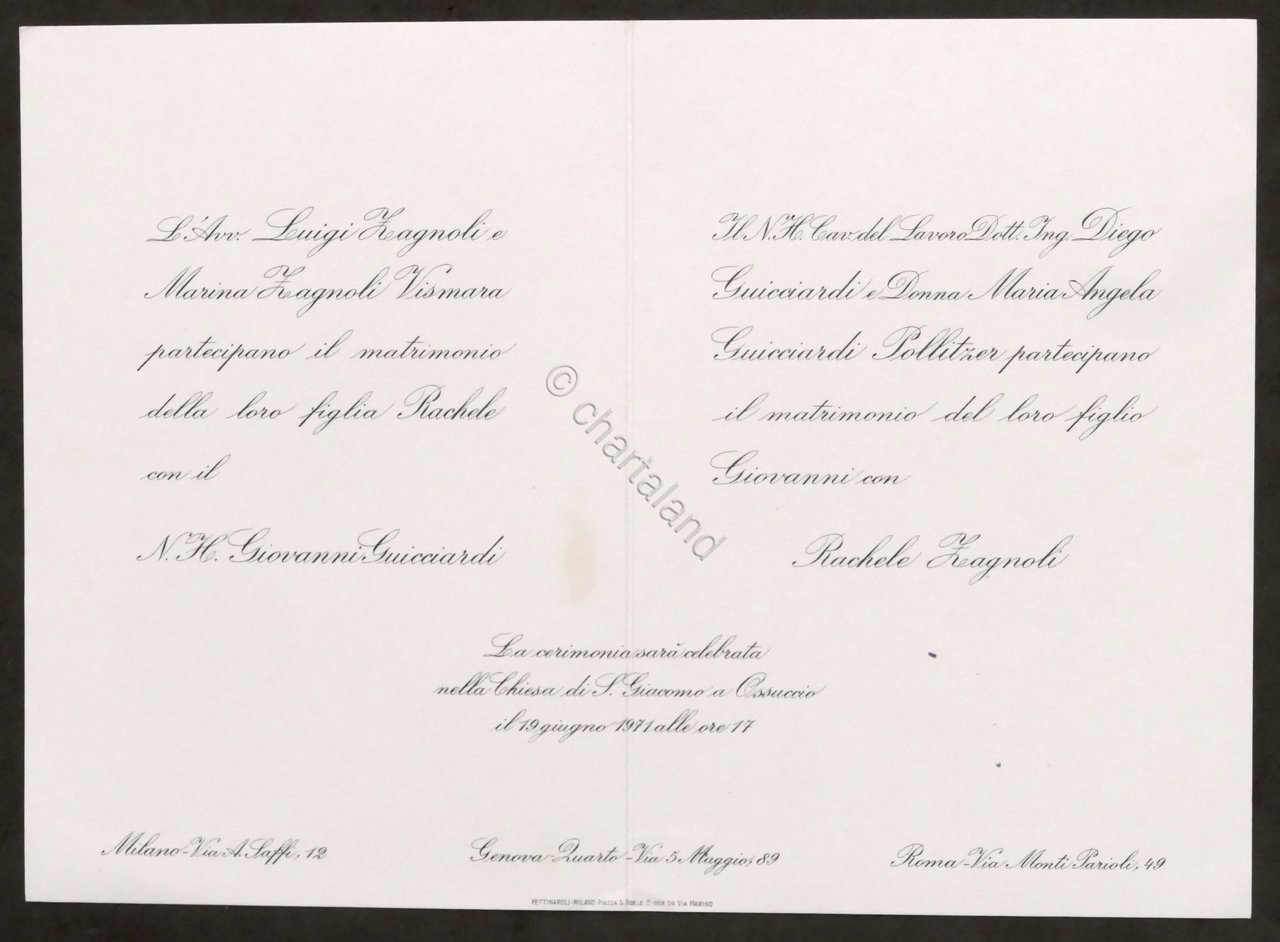 L'Avv. Luigi Zagnoli e
Marina Zagnoli Vismara
partecipano il matrimonio
della loro figlia Rachele
con il
N. H. Giovanni Guicciardi
Il N. H. Cav. del Lavoro Dott. Ing. Diego
Guicciardi e Donna Maria Angela
Guicciardi Pollitzer partecipano
il matrimonio del loro figlio
Giovanni con
Rachele Zagnoli
© chartaland
La cerimonia sarà celebrata
nella Chiesa di S. Giacomo a Ossuccio
il 19 giugno 1971 alle ore 17
Milano - Via A. Saffi, 12
Genova Quarto - Via 5 Maggio, 89
Roma - Via Monti Parioli, 49
PETTINAROLI - MILANO - PIAZZA S. FEDELE 2 - INGR DA VIA MARINO